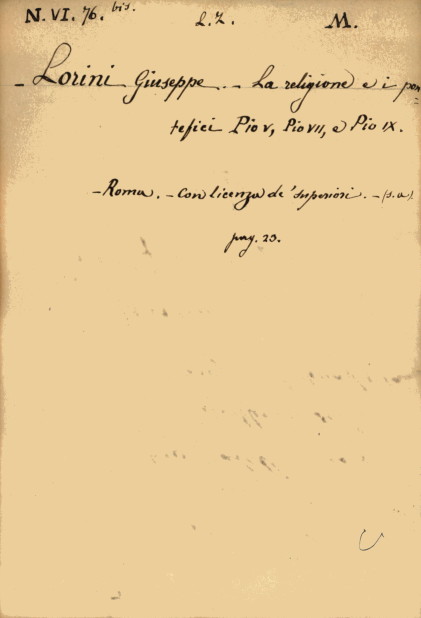 N. VI. 76. bis. L. Z. M.
- Lorini Giuseppe. - La religione e i pon
tefici Pio V, Pio VII, e Pio IX.
- Roma. - Con licenza de' superiori. - (s.a.)
pag. 23.